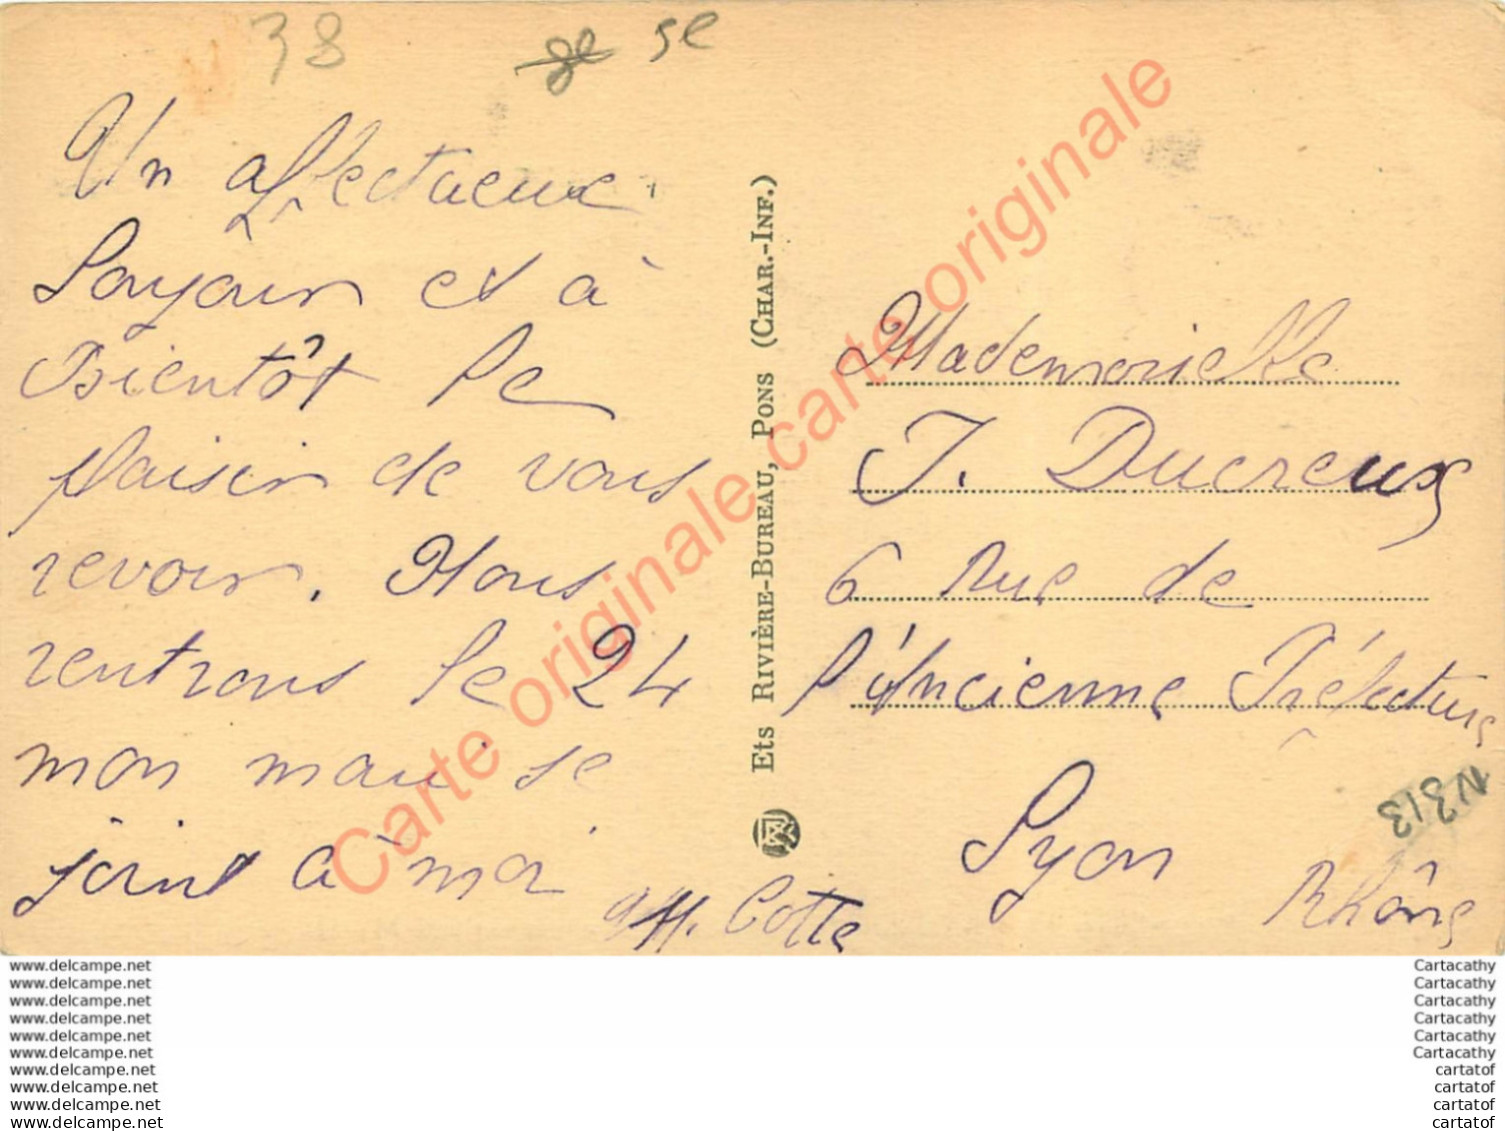 38
ge se
Un affectueux
Bonjour et à
Bientôt le
plaisir de vous
revoir. Nous
rentrons le 24
mon mari se
joint à moi
M. Cotte
Ets RIVIÈRE-BUREAU, PONS (CHAR.-INF.)
Mademoiselle
J. Ducreux
6 Rue de
l'Ancienne Préfecture
Lyon
Rhône
N313
Carte originale carte originale
www.delcampe.net
www.delcampe.net
www.delcampe.net
www.delcampe.net
www.delcampe.net
www.delcampe.net
www.delcampe.net
www.delcampe.net
www.delcampe.net
www.delcampe.net
Cartacathy
Cartacathy
Cartacathy
Cartacathy
Cartacathy
Cartacathy
cartatof
cartatof
cartatof
cartatof